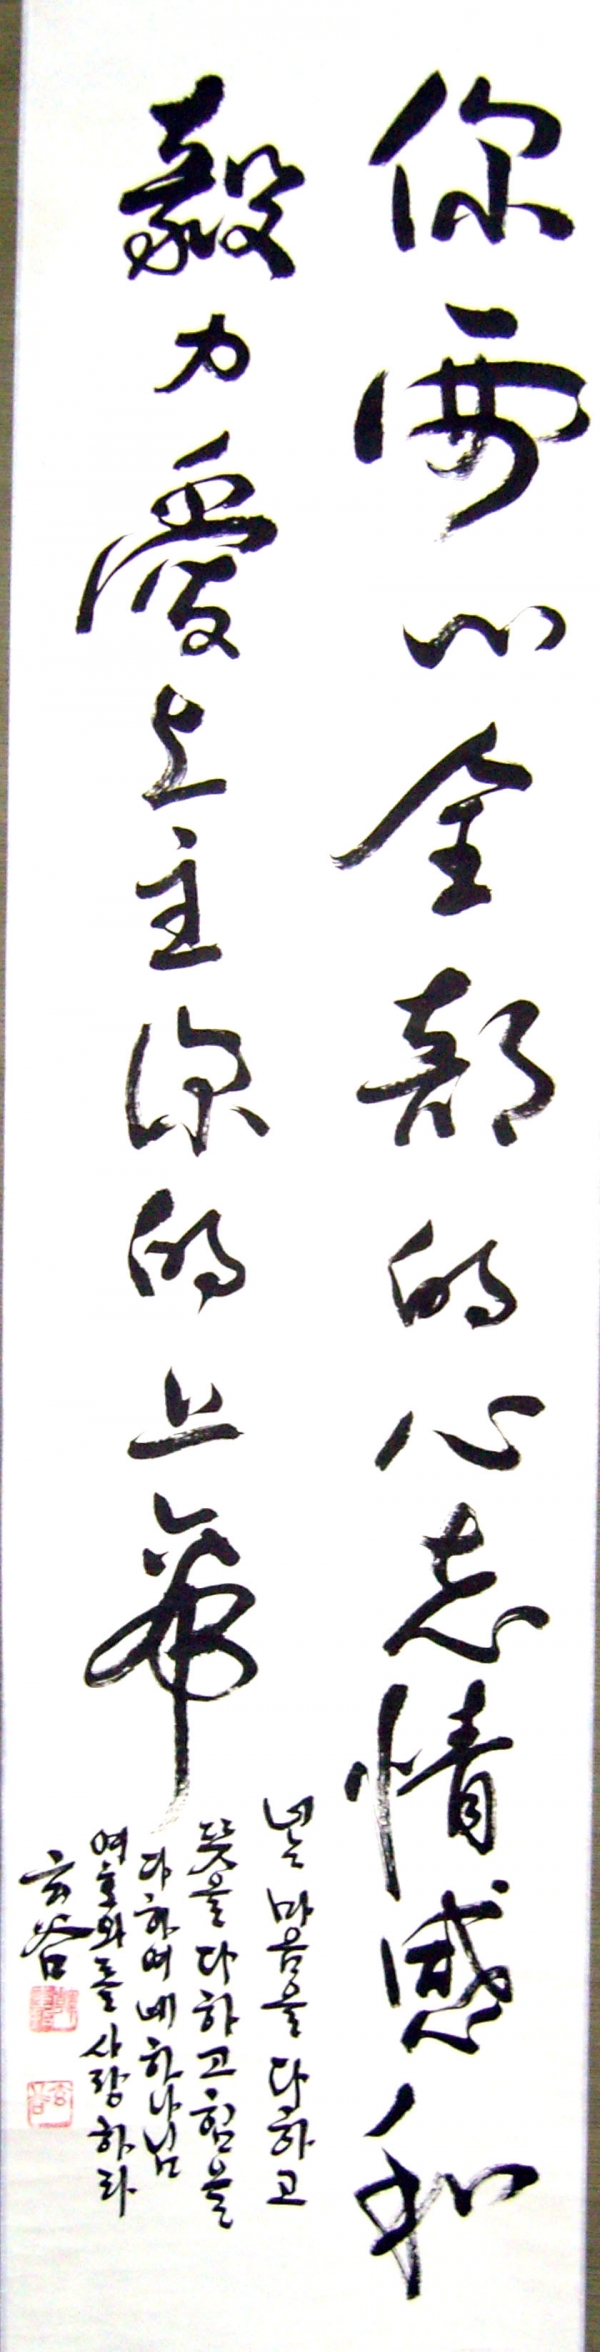 你要以全部的心志情感和
毅力愛上主你的上帝
너는 마음을 다하고
뜻을 다하고 힘을
다하여 네 하나님
여호와를 사랑하라
玄谷